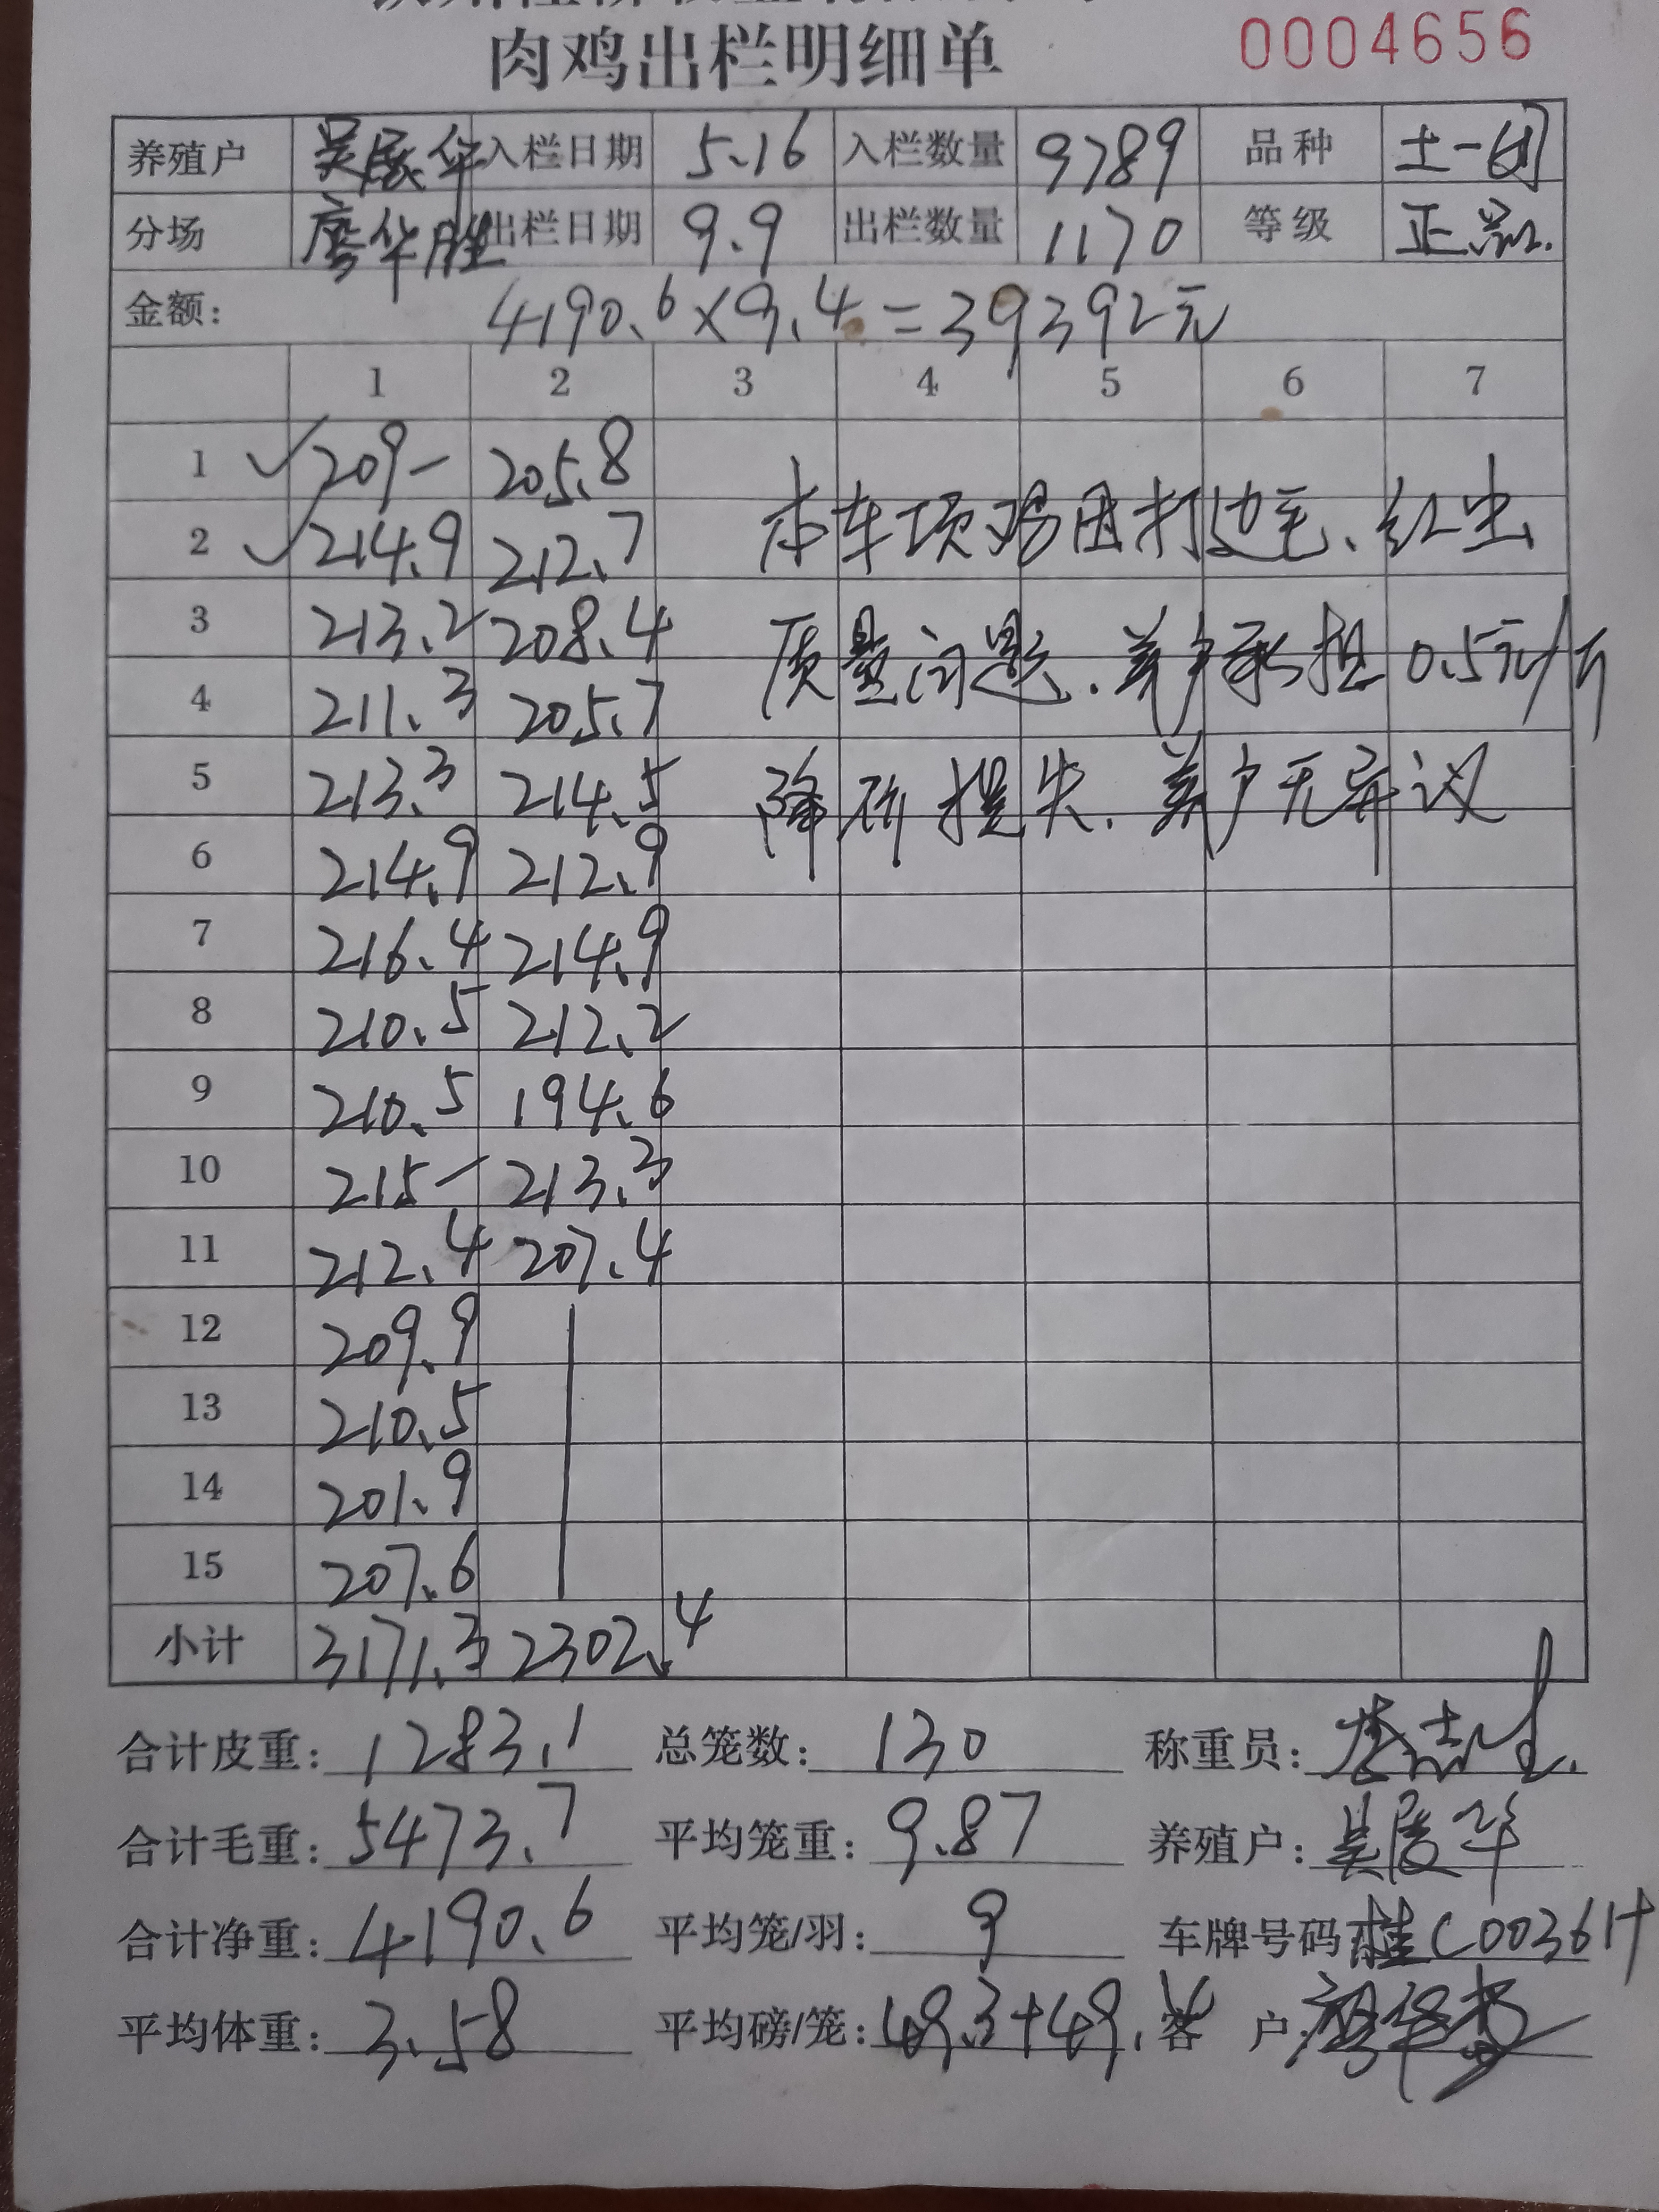 肉鸡出栏明细单 0004656
养殖户 吴展华 入栏日期 5.16 入栏数量 9789 品种 土一
分场 廖华胜 出栏日期 9.9 出栏数量 1170 等级 正品.
金额: 4190.6×9.4=39392元
1 2 3 4 5 6 7
1 ✓209- 205.8
2 ✓214.9 212.7
本车项鸡因打边毛、红虫
3 213.2 208.4
4 211.3 205.7
质量问题.养户承担0.5元/斤
5 213.3 214.5
降价损失.养户无异议
6 214.9 212.9
7 216.4 214.9
8 210.5 212.2
9 210.5 194.6
10 215- 213.3
11 212.4 207.4
12 209.9
13 210.5
14 201.9
15 207.6
小计 3171.3 2302.4
合计皮重: 1283.1 总笼数: 130 称重员:
合计毛重: 5473.7 平均笼重: 9.87 养殖户: 吴展华
合计净重: 4190.6 平均笼/羽: 9 车牌号码 桂C00361
平均体重: 3.58 平均磅/笼: 客 户: